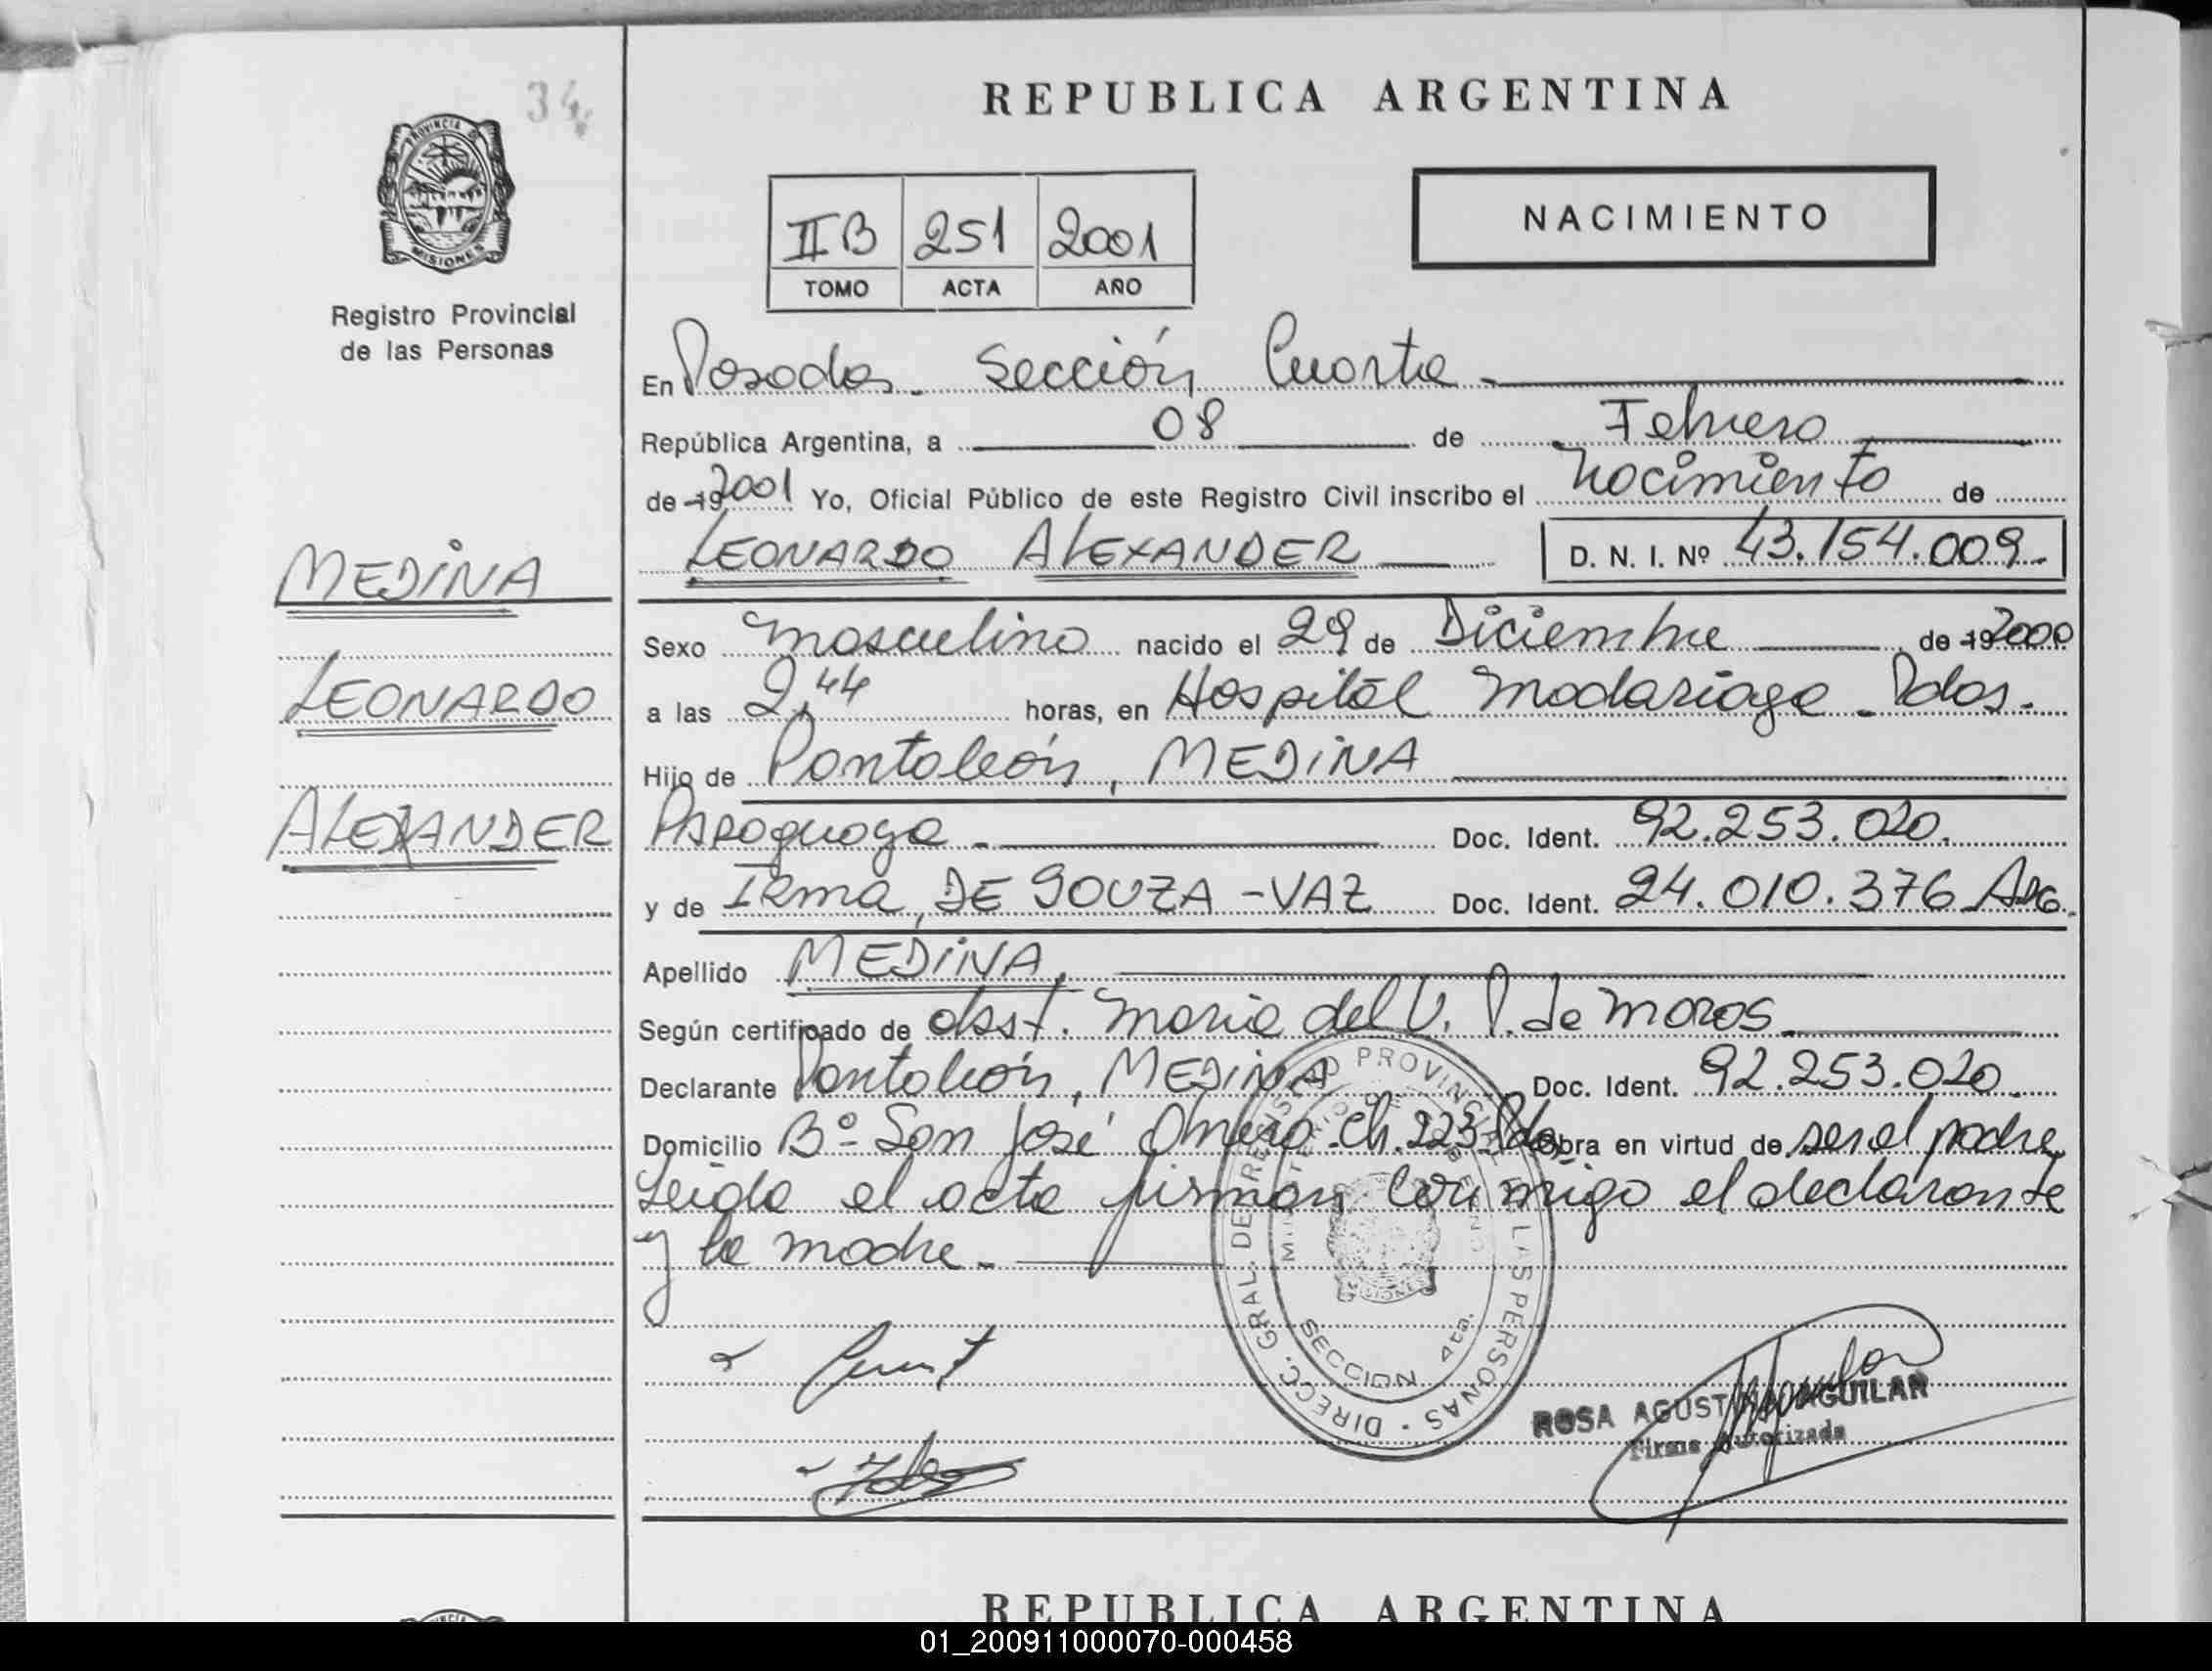 34
PROVINCIA DE
MISIONES
Registro Provincial
de las Personas
MEDINA
LEONARDO
ALEXANDER
REPUBLICA ARGENTINA
IIB 251 2001
TOMO ACTA AÑO
NACIMIENTO
En Posadas - Sección Cuarta -
República Argentina, a 08 de Febrero
de 19 2001 Yo, Oficial Público de este Registro Civil inscribo el Nacimiento de
LEONARDO ALEXANDER D. N. I. Nº 43.154.009-
Sexo masculino nacido el 29 de Diciembre de 19 2000
a las 2,44 horas, en Hospital Madariaga - Pdas.
Hijo de Pantaleón, MEDINA
PARaguaya - Doc. Ident. 92.253.020.
y de IRma, DE SOUZA - VAZ Doc. Ident. 24.010.376 ARG.
Apellido MEDINA,
Según certificado de obst. Maria del V. P. de Moros
Declarante Pantaleón, MEDINA Doc. Ident. 92.253.020
Domicilio Bº San José Obrero - Ch. 223 - Pdas Obra en virtud de ser el padre
Leída el acta firman conmigo el declarante
y la madre -
DIRECC. GRAL. DEL REGISTRO PROVINCIAL DE LAS PERSONAS
MINISTERIO DE GOBIERNO
MISIONES
SECCION 4ta.
ROSA AGUSTINA AGUILAR
Firma Autorizada
REPUBLICA ARGENTINA
01_200911000070-000458